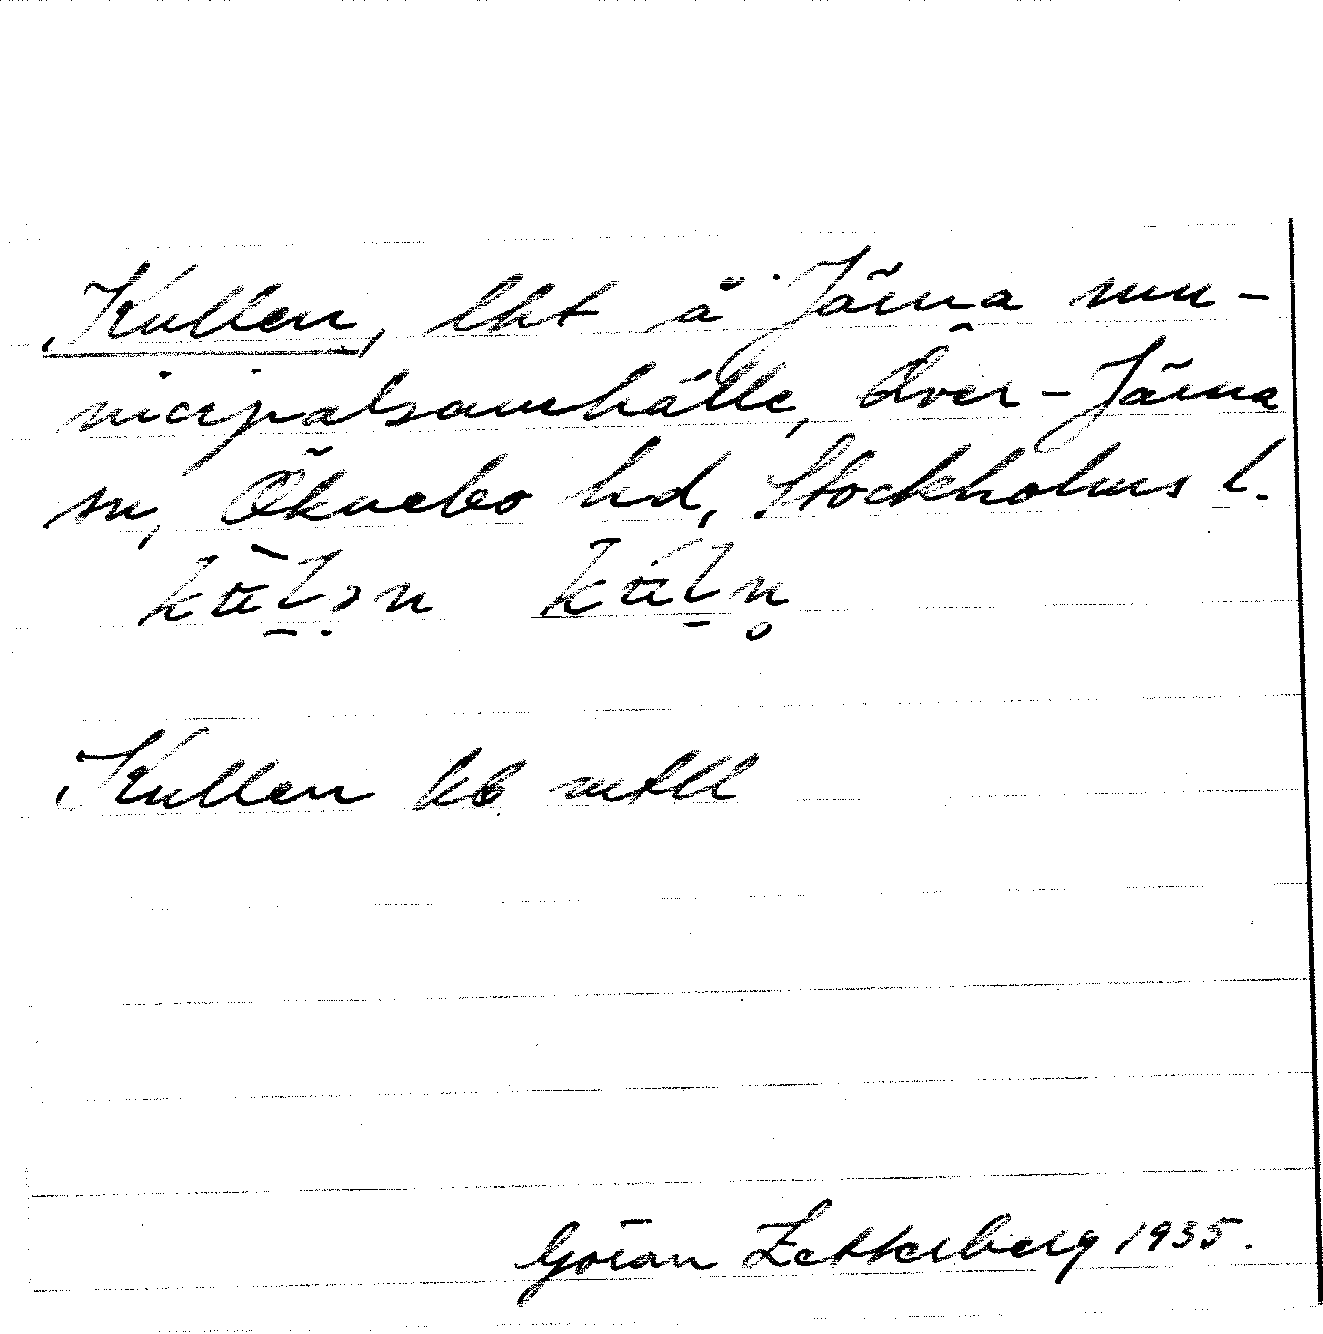 Kullen, lht å Järna mu-
nicipalsamhälle, Över-Järna
sn, Öknebo hd, Stockholms l.
Kullen kb mtll
Göran Zetterberg 1935.